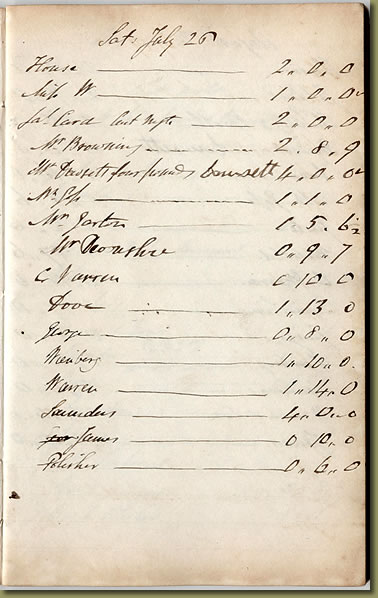 Sat. July 26
House 2 " 0 " 0
Miss W 1 " 0 " 0
Card last night 2 " 0 " 0
Mr Browning 2 . 8 . 9
Mr Dousett four pounds Dowsett 4 " 0 " 0
Mr 1 " 1 " 0
Mr 1 5 . 6½
Mr Devonshire 0 " 9 " 7
C Warren 0 10 0
Dove 1 " 13 0
George 0 " 8 " 0
Wenberg 1 " 10 " 0
Warren 1 " 14 " 0
Saunders 4 " 0 " 0
James 0 10 " 0
Polisher 0 " 6 " 0